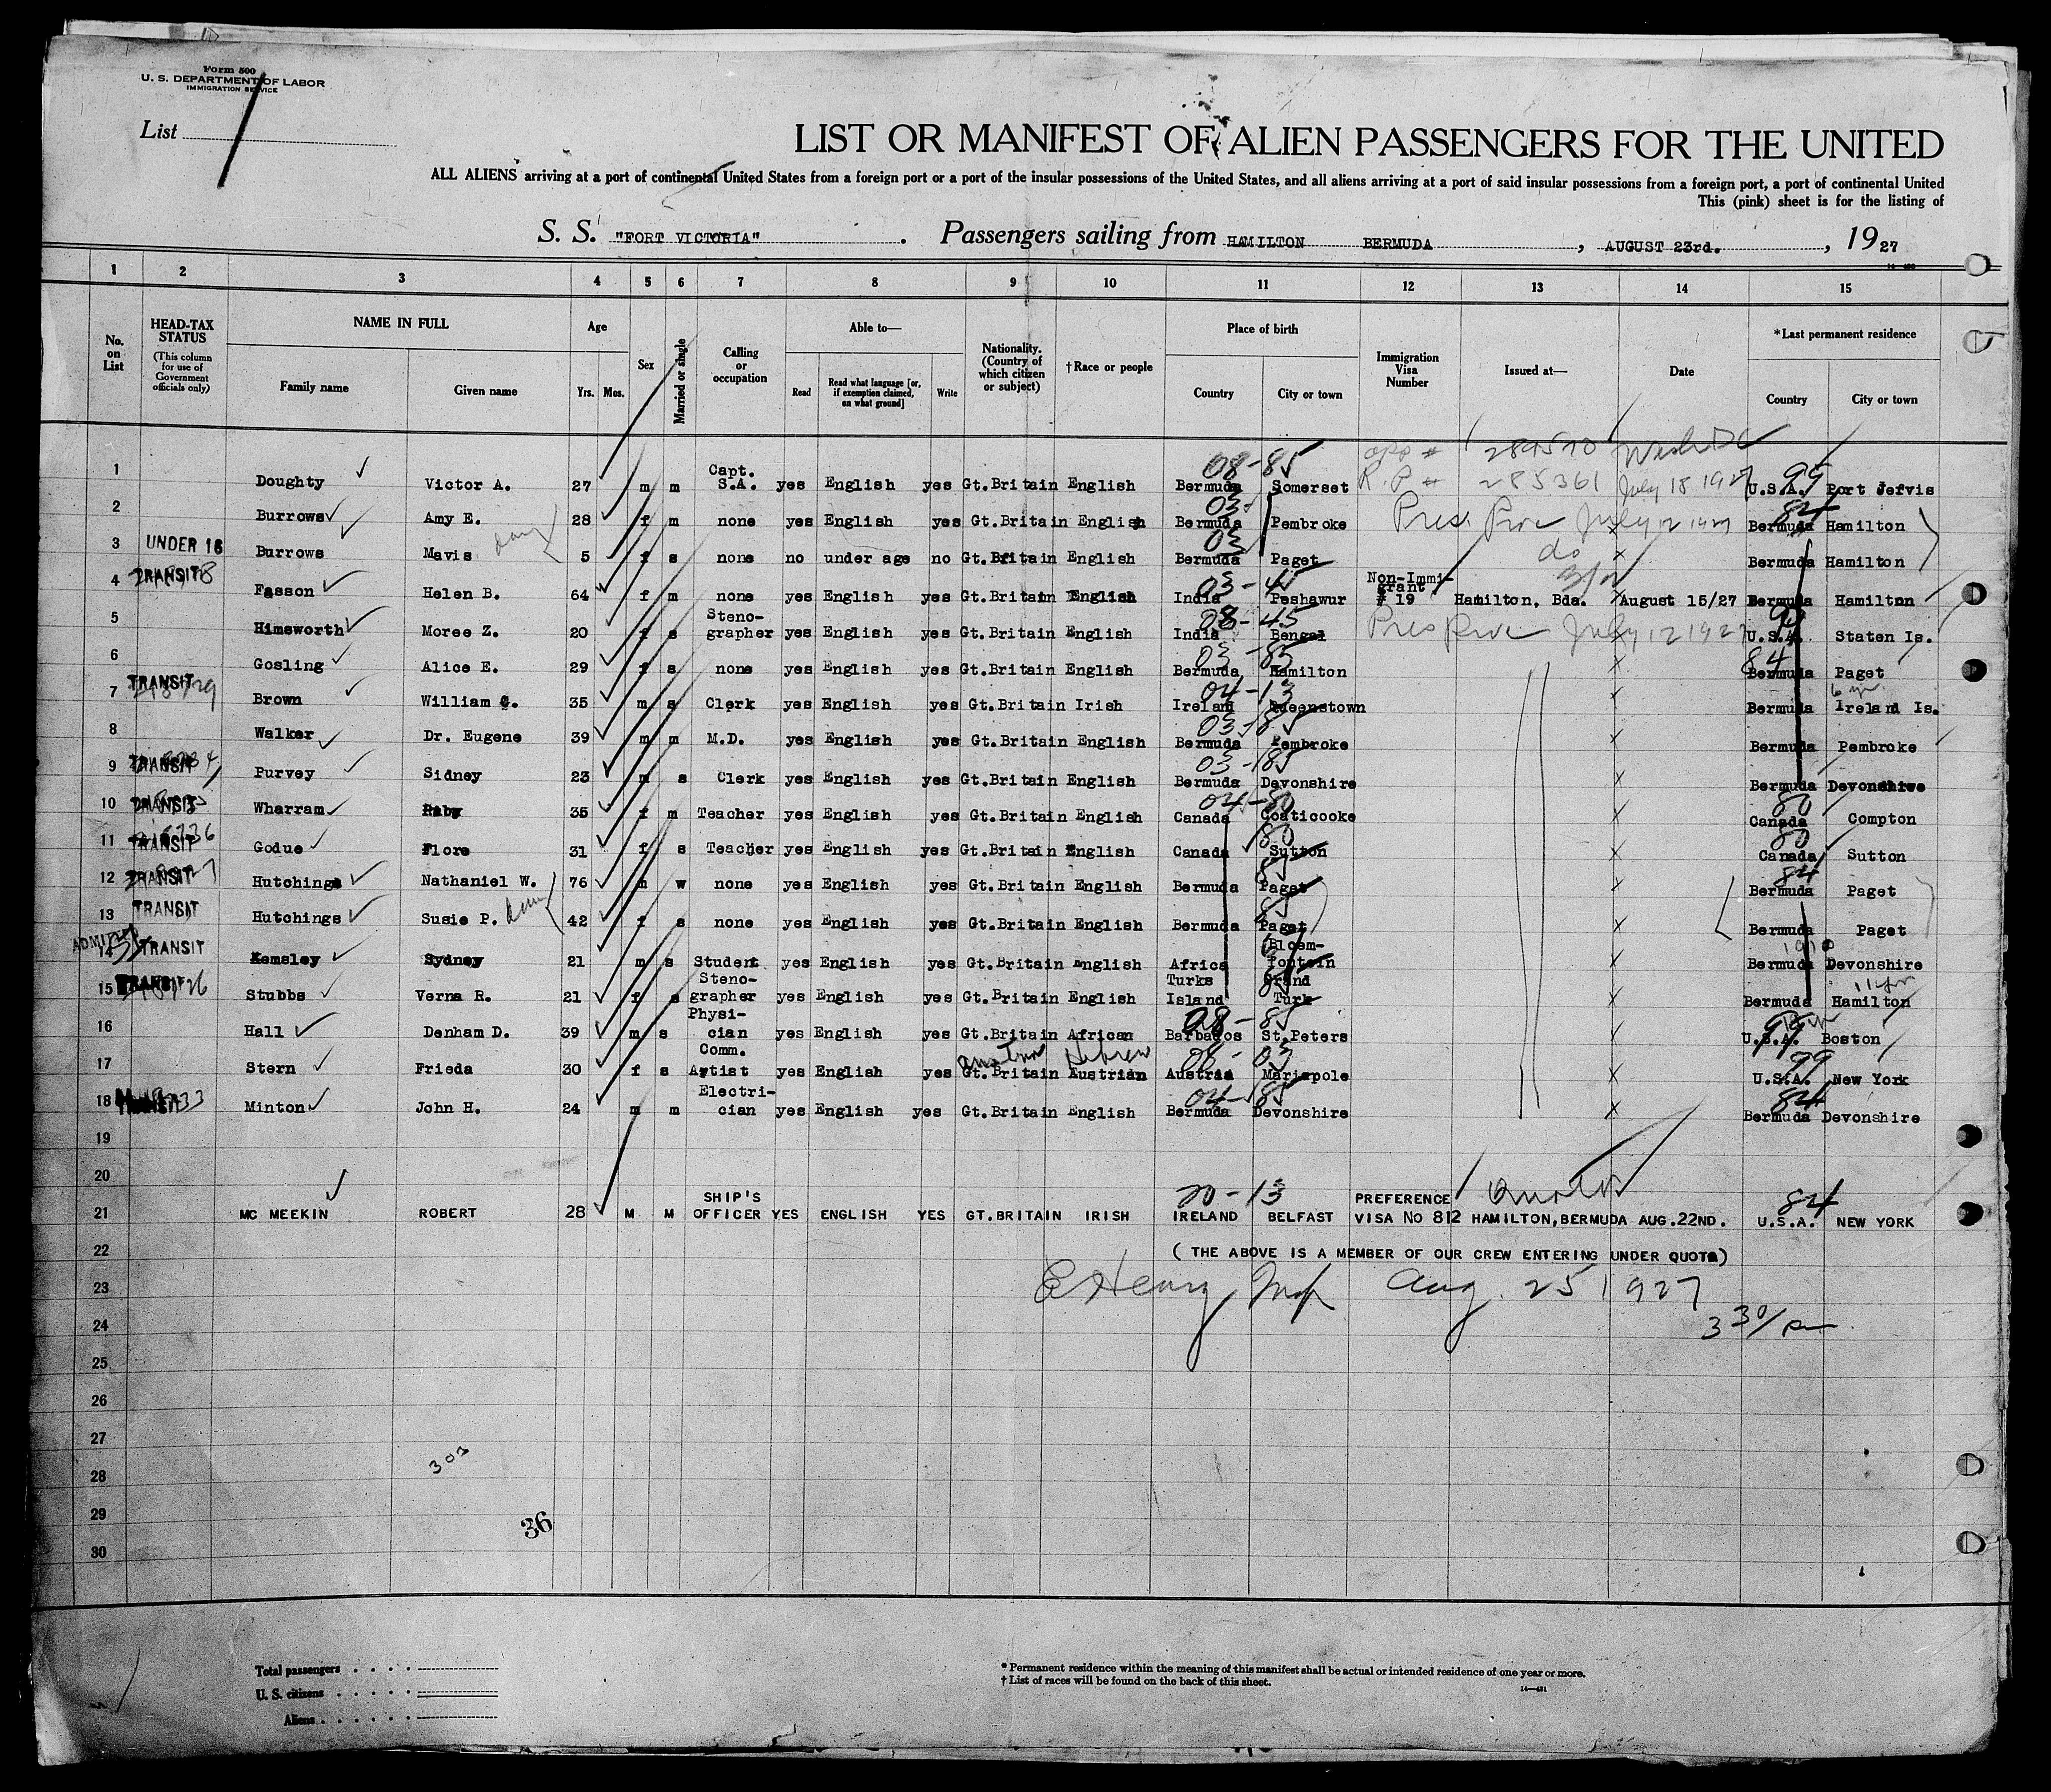 Form 500
U. S. DEPARTMENT OF LABOR
IMMIGRATION SERVICE
List
LIST OR MANIFEST OF ALIEN PASSENGERS FOR THE UNITED
ALL ALIENS arriving at a port of continental United States from a foreign port or a port of the insular possessions of the United States, and all aliens arriving at a port of said insular possessions from a foreign port, a port of continental United
This (pink) sheet is for the listing of
S. S. "FORT VICTORIA" . Passengers sailing from HAMILTON BERMUDA , AUGUST 23rd. , 1927
1 2 3 4 5 6 7 8 9 10 11 12 13 14 15
No. on List HEAD-TAX STATUS (This column for use of Government officials only) NAME IN FULL Family name Given name Age Yrs. Mos. Sex Married or single Calling or occupation Able to— Read Read what language [or, if exemption claimed, on what ground] Write Nationality. (Country of which citizen or subject) †Race or people Place of birth Country City or town Immigration Visa Number Issued at— Date *Last permanent residence Country City or town
08-85 289570 Wash DC
1 Doughty Victor A. 27 m m Capt. S.A. yes English yes Gt.Britain English Bermuda Somerset R.P # 285361 July 18 1927 99 U.S.A. Port Jefvis
2 Burrows Amy E. 28 f m none yes English yes Gt.Britain English 03 Bermuda Pembroke Pres. Prve July 12 1927 84 Bermuda Hamilton
3 UNDER 16 Burrows Mavis 5 f s none no under age no Gt.Britain English 03 Bermuda Paget do Bermuda Hamilton
4 TRANSIT Fasson Helen B. 64 f m none yes English yes Gt.Britain English 03-45 India Peshawur Non-Immi-grant # 19 Hamilton, Bda. August 15/27 Bermuda Hamilton
5 Himsworth Moree Z. 20 f s Steno-grapher yes English yes Gt.Britain English 08-45 India Bengal Pres Prve July 12 1927 99 U.S.A. Staten Is.
6 Gosling Alice E. 29 f s none yes English yes Gt.Britain English 03-85 Bermuda Hamilton 84 Bermuda Paget
7 TRANSIT Brown William C. 35 m s Clerk yes English yes Gt.Britain Irish 04-13 Ireland Queenstown Bermuda Ireland Is.
8 Walker Dr. Eugene 39 m m M.D. yes English yes Gt.Britain English 03-85 Bermuda Pembroke Bermuda Pembroke
9 TRANSIT Purvey Sidney 23 m s Clerk yes English yes Gt.Britain English 03-85 Bermuda Devonshire Bermuda Devonshire
10 TRANSIT Wharram Ruby 35 f m Teacher yes English yes Gt.Britain English 04-80 Canada Coaticooke 80 Canada Compton
11 TRANSIT Godue Flore 31 f s Teacher yes English yes Gt.Britain English 80 Canada Sutton 80 Canada Sutton
12 TRANSIT Hutchings Nathaniel W. 76 m w none yes English yes Gt.Britain English 85 Bermuda Paget 84 Bermuda Paget
13 TRANSIT Hutchings Susie P. 42 f s none yes English yes Gt.Britain English 85 Bermuda Paget Bermuda Paget
ADMITTED
14 TRANSIT Kemsley Sydney 21 m s Student yes English yes Gt.Britain English Africa Bloem-fontein Bermuda Devonshire
15 TRANSIT Stubbs Verna R. 21 f s Steno-grapher yes English yes Gt.Britain English Turks Island Grand Turk 11 yrs Bermuda Hamilton
16 Hall Denham D. 39 m s Physi-cian yes English yes Gt.Britain African 08-85 Barbados St.Peters 99 U.S.A. Boston
17 Stern Frieda 30 f s Comm. Artist yes English yes Gt.Britain Austrian Hebrew 08-03 Austria Mariapole 99 U.S.A. New York
18 TRANSIT Minton John H. 24 m m Electri-cian yes English yes Gt.Britain English 04-85 Bermuda Devonshire 84 Bermuda Devonshire
19
20
21 MC MEEKIN ROBERT 28 M M SHIP'S OFFICER YES ENGLISH YES GT.BRITAIN IRISH 20-13 IRELAND BELFAST PREFERENCE VISA No 812 HAMILTON, BERMUDA AUG.22ND. 84 U.S.A. NEW YORK
22 ( THE ABOVE IS A MEMBER OF OUR CREW ENTERING UNDER QUOTA)
23 E Henry Insp Aug. 25 1927
24 3 30/pm
25
26
27
303
28
29
36
30
Total passengers
U. S. citizens
Aliens
* Permanent residence within the meaning of this manifest shall be actual or intended residence of one year or more.
† List of races will be found on the back of this sheet.
14—431